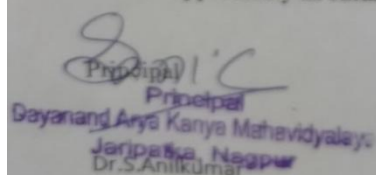 Principal
Principal
Dayanand Arya Kanya Mahavidyalaya
Jaripatka, Nagpur
Dr.S.Anilkumar